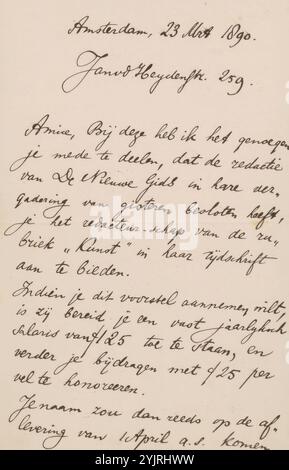 Amsterdam, 23 Mrt 1890.
Jan v d Heydenstr. 259.
Amice, Bij deze heb ik het genoegen
je mede te deelen, dat de redactie
van De Nieuwe Gids in hare ver-
gadering van gisteren besloten heeft,
je het redacteur-schap van de ru-
briek „Kunst" in haar tijdschrift
aan te bieden.
Indien je dit voorstel aannemen wilt,
is zij bereid je een vast jaarlyksch
salaris van ƒ125 toe te staan, en
verder je bijdragen met ƒ25 per
vel te honoreeren.
Je naam zou dan reeds op de af-
levering van 1 April a.s. komen
alamy
Image ID: 2YJRHWW
www.alamy.com